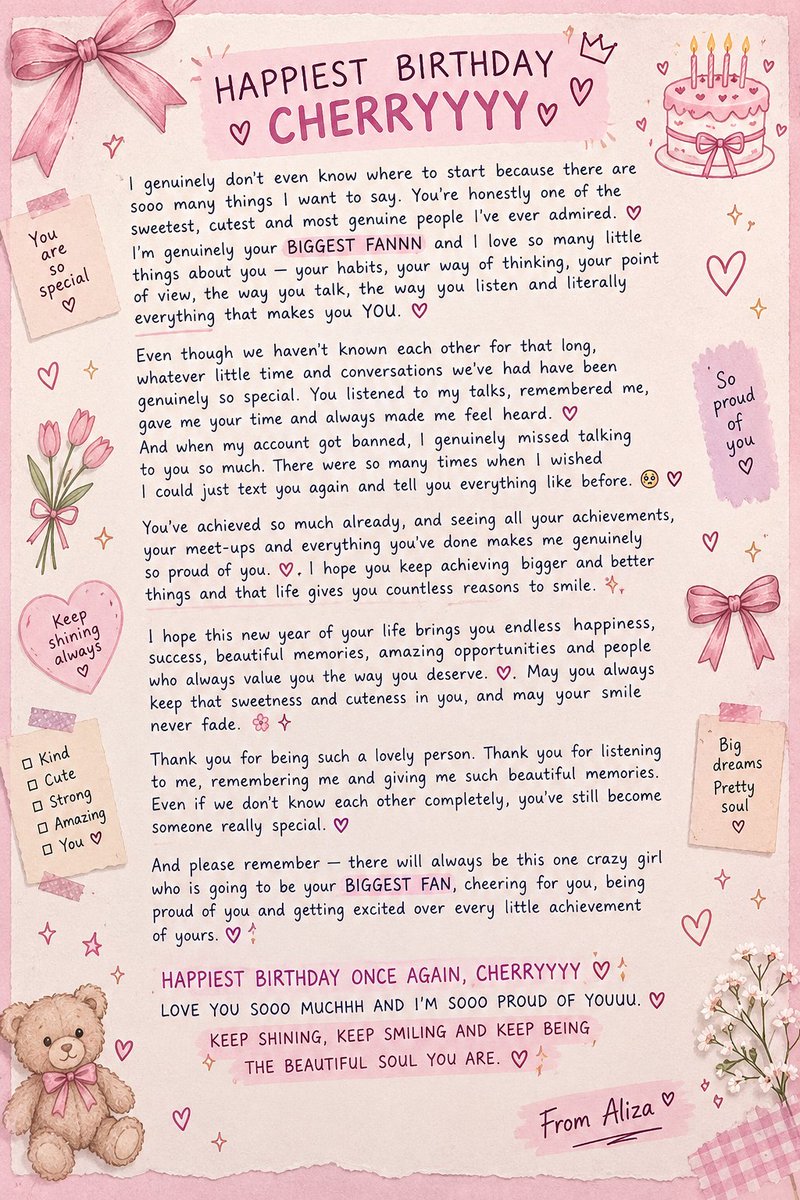 HAPPIEST BIRTHDAY
♡ CHERRYYYY ♡
I genuinely don't even know where to start because there are
sooo many things I want to say. You're honestly one of the
sweetest, cutest and most genuine people I've ever admired. ♡
I'm genuinely your BIGGEST FANNN and I love so many little
things about you — your habits, your way of thinking, your point
of view, the way you talk, the way you listen and literally
everything that makes you YOU. ♡
Even though we haven't known each other for that long,
whatever little time and conversations we've had have been
genuinely so special. You listened to my talks, remembered me,
gave me your time and always made me feel heard. ♡
And when my account got banned, I genuinely missed talking
to you so much. There were so many times when I wished
I could just text you again and tell you everything like before. 🥺 ♡
You've achieved so much already, and seeing all your achievements,
your meet-ups and everything you've done makes me genuinely
so proud of you. ♡. I hope you keep achieving bigger and better
things and that life gives you countless reasons to smile. ✨
I hope this new year of your life brings you endless happiness,
success, beautiful memories, amazing opportunities and people
who always value you the way you deserve. ♡. May you always
keep that sweetness and cuteness in you, and may your smile
never fade. 🌸 ✧
Thank you for being such a lovely person. Thank you for listening
to me, remembering me and giving me such beautiful memories.
Even if we don't know each other completely, you've still become
someone really special. ♡
And please remember — there will always be this one crazy girl
who is going to be your BIGGEST FAN, cheering for you, being
proud of you and getting excited over every little achievement
of yours. ♡
HAPPIEST BIRTHDAY ONCE AGAIN, CHERRYYYY ♡
LOVE YOU SOOO MUCHHH AND I'M SOOO PROUD OF YOUUU. ♡
KEEP SHINING, KEEP SMILING AND KEEP BEING
THE BEAUTIFUL SOUL YOU ARE. ♡
From Aliza ♡
You
are
so
special
♡
Keep
shining
always
♡
☐ Kind
☐ Cute
☐ Strong
☐ Amazing
☐ You ♡
So
proud
of
you
♡
Big
dreams
Pretty
soul
♡